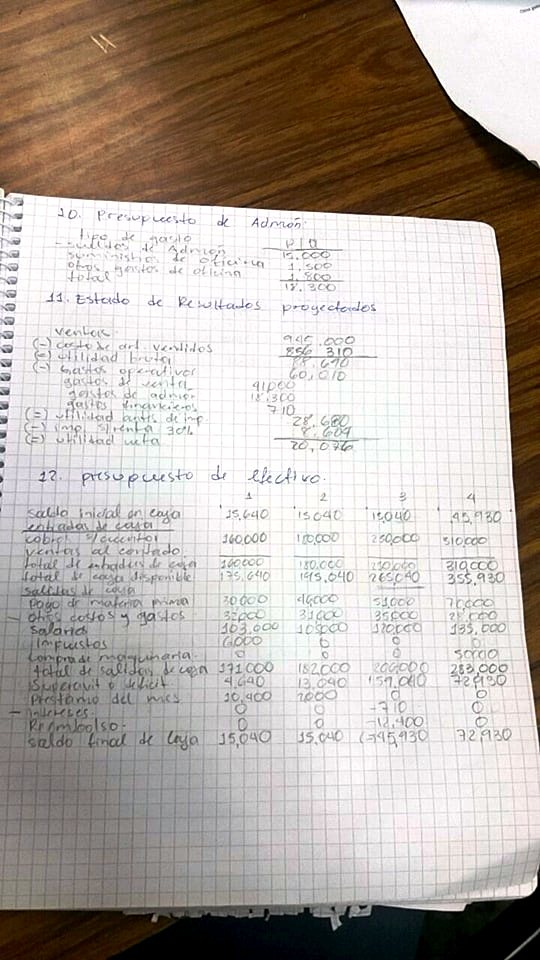 10. Presupuesto de Admón.
tipo de gasto P/A
- sueldos de Admón 15,000
suministros de oficina 1.500
otros gastos de oficina 1.800
total 18.300
11. Estado de Resultados proyectados
Ventas. 945.000
(-) costo de art. vendidos 856 310
(=) utilidad bruta 88.690
(-) Gastos operativos 60,010
gastos de venta 41000
gastos de admon 18,300
gastos financieros 710
(=) utilidad antes de imp 28.680
(-) imp. s/renta 30% 8.604
(=) utilidad neta 20,076
12. presupuesto de efectivo.
1 2 3 4
saldo inicial en caja 15,640 15040 15,040 45,930
entradas de caja
cobros s/cuentas 160,000 180,000 250,000 310000
ventas al contado
total de entradas de caja 160,000 180,000 250,000 310,000
total de caja disponible 175,640 195,040 265,040 355,930
salidas de caja
Pago de materia prima 30,000 46000 51,000 70,000
- otros costos y gastos 32000 31000 35000 28,000
salarios 103,000 105000 120,000 135,000
Impuestos 6000 0 0 0
compra de maquinaria. 0 0 0 50000
total de salidas de caja 171000 182000 206000 283,000
Superavit o deficit 4,640 13,040 59,040 72,930
Prestamo del mes 10,400 2000 0 0
- Intereses. 0 0 -710 0
Reembolso. 0 0 -12,400 0
saldo final de caja 15,040 15,040 45,930 72,930